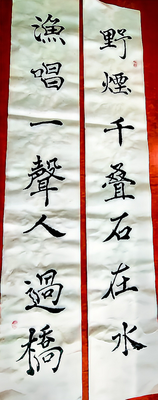 野煙千叠石在水
漁唱一聲人過橋